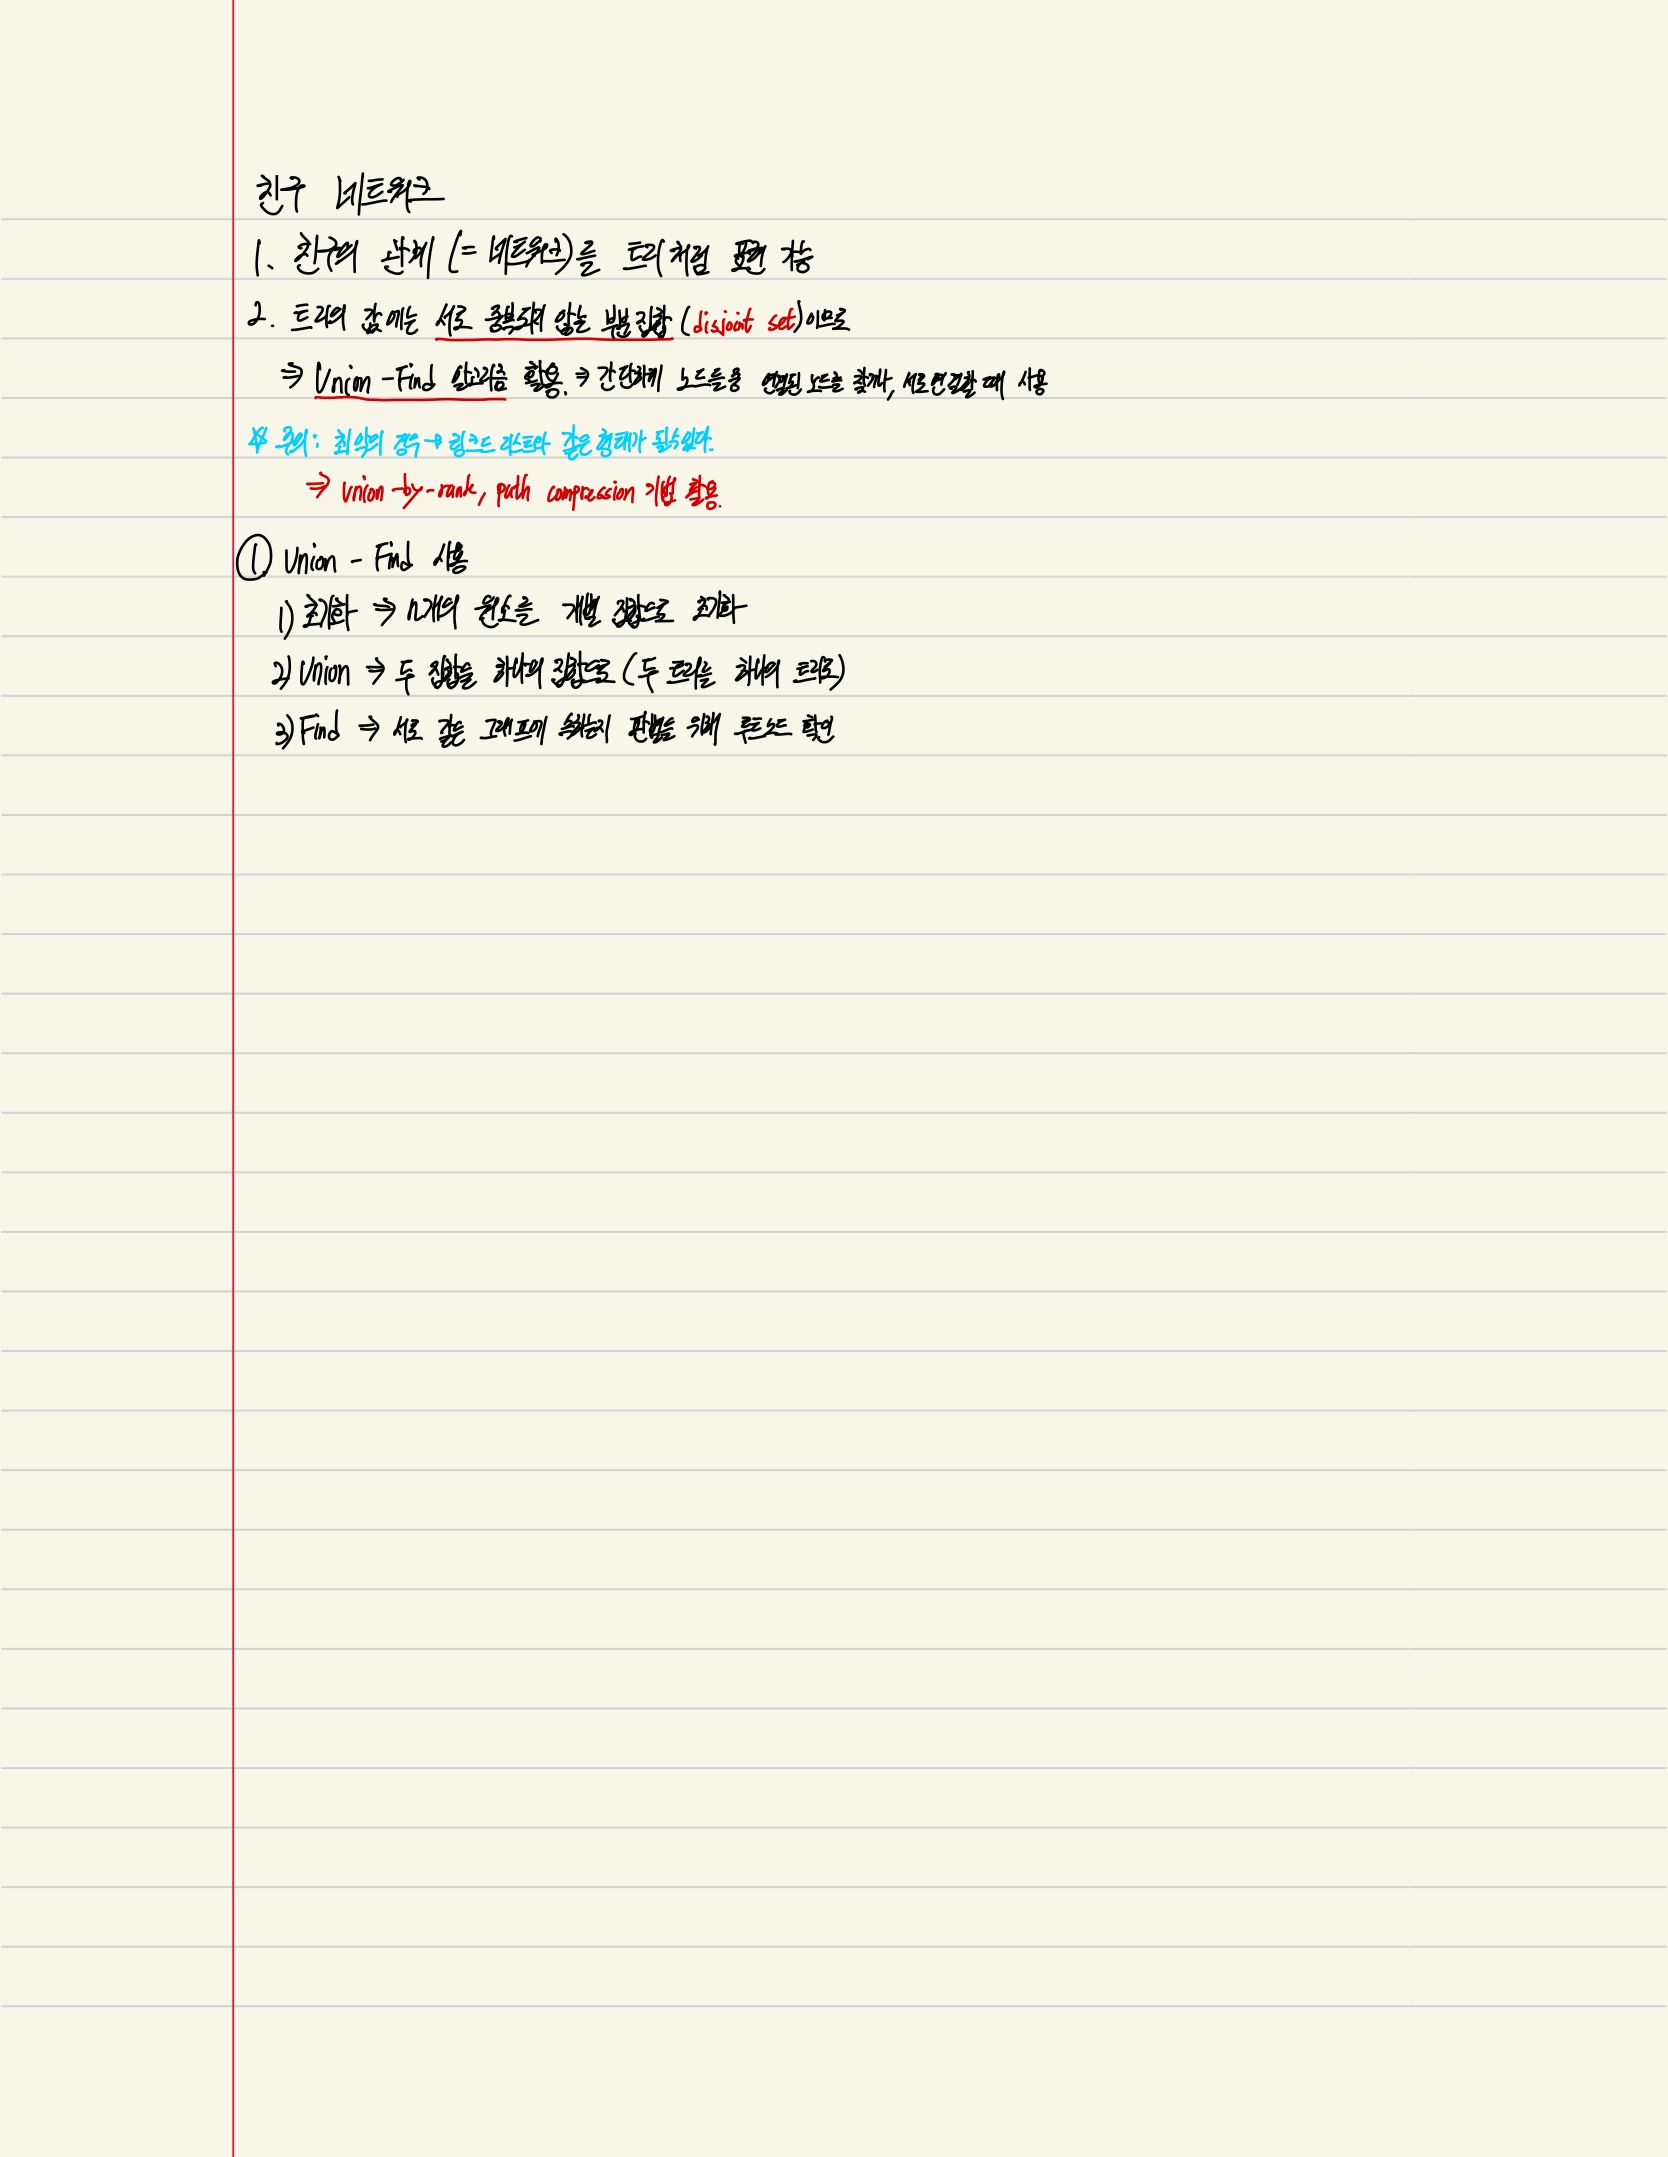 친구 네트워크
1. 친구의 관계 (= 네트워크)를 트리처럼 표현 가능
2. 트리의 값에는 서로 중복되지 않는 부분집합 (disjoint set)이므로
⇒ Union-Find 알고리즘 활용. → 간단하게 노드들 중 연결된 노드를 찾거나, 서로 연결할 때 사용
※ 주의: 최악의 경우 → 링크드 리스트와 같은 형태가 될 수 있다.
⇒ union-by-rank, path compression 기법 활용.
① Union - Find 사용
1) 초기화 ⇒ n개의 원소를 개별 집합으로 초기화
2) Union ⇒ 두 집합을 하나의 집합으로 (두 트리를 하나의 트리로)
3) Find ⇒ 서로 같은 그래프에 속하는지 판별을 위해 루트노드 확인